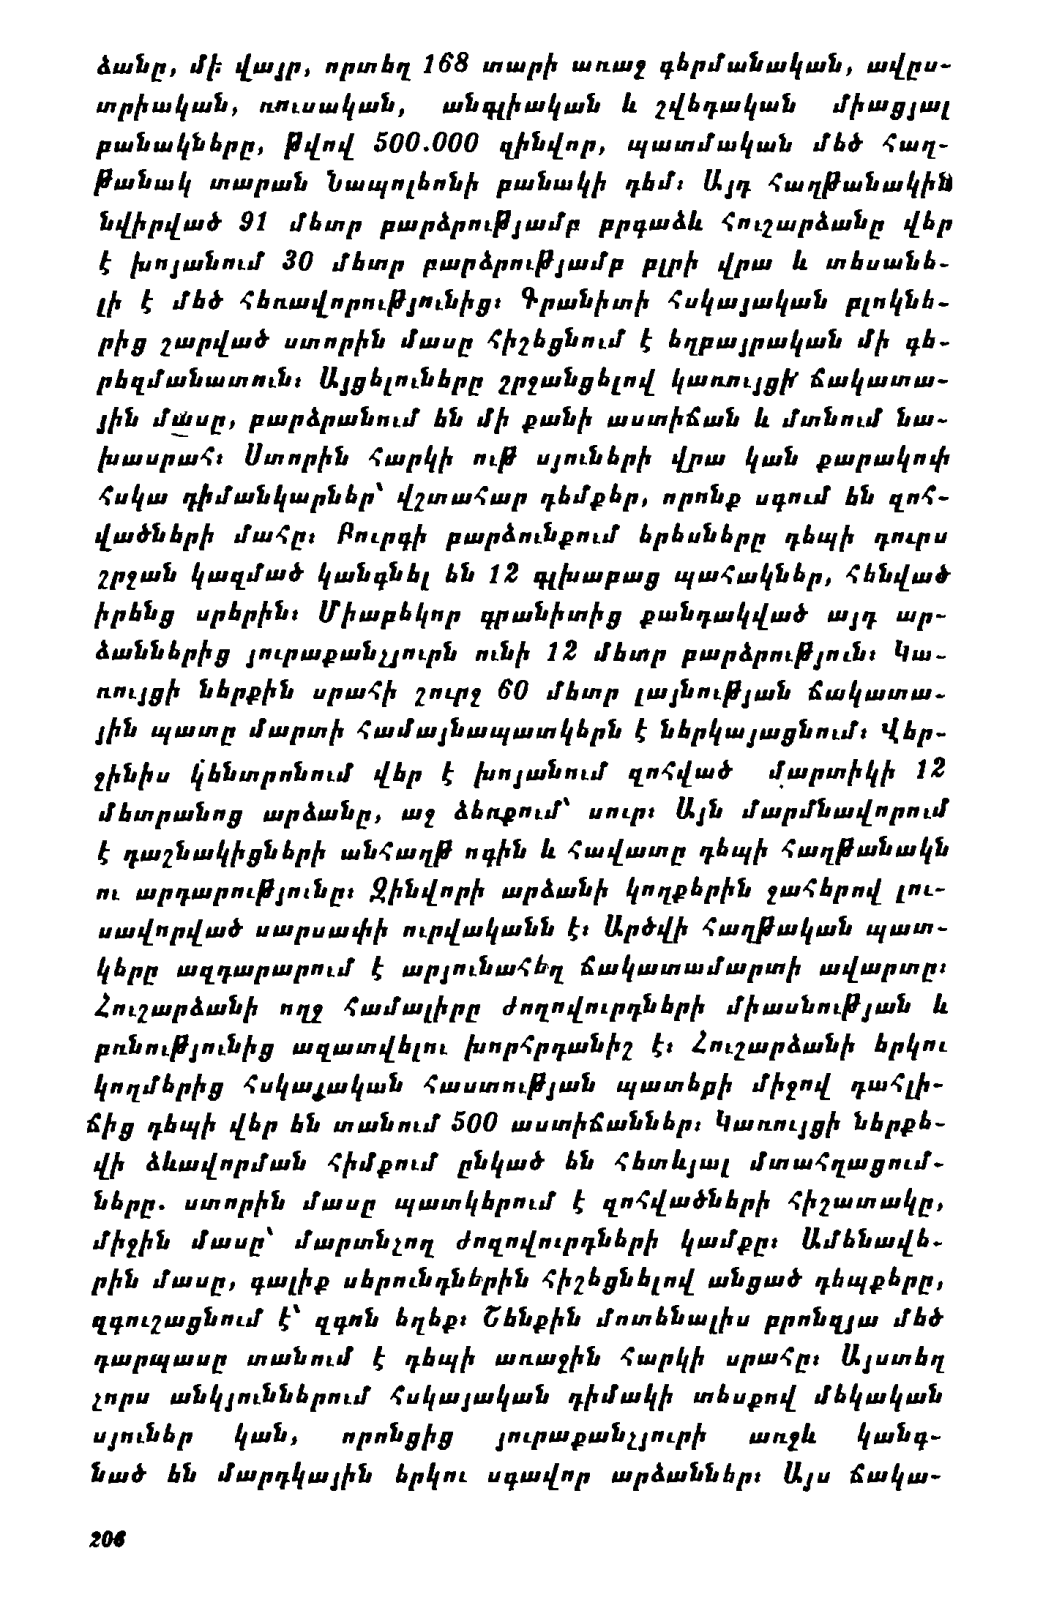 ձանը, մի վայր, որտեղ 168 տարի առաջ գերմանական, ավըս-
տրիական, ռուսական, անգլիական և շվեդական միացյալ
բանակները, թվով 500.000 զինվոր, պատմական մեծ հաղ-
թանակ տարան Նապոլեոնի բանակի դեմ։ Այդ հաղթանակին
նվիրված 91 մետր բարձրությամբ բրգաձև հուշարձանը վեր
է խոյանում 30 մետր բարձրությամբ բլրի վրա և տեսանե-
լի է մեծ հեռավորությունից։ Գրանիտի հսկայական բլոկնե-
րից շարված ստորին մասը հիշեցնում է եղբայրական մի գե-
րեզմանատուն։ Այցելուները շրջանցելով կառույցի ճակատա-
յին մասը, բարձրանում են մի քանի աստիճան և մտնում նա-
խասրահ։ Ստորին հարկի ութ սյուների վրա կան քարակոփ
հսկա դիմանկարներ՝ վշտահար դեմքեր, որոնք սգում են զոհ-
վածների մահը։ Բուրգի բարձունքում երեսները դեպի դուրս
շրջան կազմած կանգնել են 12 գլխաբաց պահակներ, հենված
իրենց սրերին։ Միաբեկոր գրանիտից քանդակված այդ ար-
ձաններից յուրաքանչյուրն ունի 12 մետր բարձրություն։ Կա-
ռույցի ներքին սրահի շուրջ 60 մետր լայնության ճակատա-
յին պատը մարտի համայնապատկերն է ներկայացնում։ Վեր-
ջինիս կենտրոնում վեր է խոյանում զոհված մարտիկի 12
մետրանոց արձանը, աջ ձեռքում՝ սուր։ Այն մարմնավորում
է դաշնակիցների անհաղթ ոգին և հավատը դեպի հաղթանակն
ու արդարությունը։ Զինվորի արձանի կողքերին ջահերով լու-
սավորված սարսափի ուրվականն է։ Արծվի հաղթական պատ-
կերը ազդարարում է արյունահեղ ճակատամարտի ավարտը։
Հուշարձանի ողջ համալիրը ժողովուրդների միասնության և
բռնությունից ազատվելու խորհրդանիշ է։ Հուշարձանի երկու
կողմերից հսկայական հաստության պատերի միջով դահլի-
ճից դեպի վեր են տանում 500 աստիճաններ։ Կառույցի ներքե-
վի ձևավորման հիմքում ընկած են հետևյալ մտահղացում-
ները. ստորին մասը պատկերում է զոհվածների հիշատակը,
միջին մասը՝ մարտնչող ժողովուրդների կամքը։ Ամենավե-
րին մասը, գալիք սերունդներին հիշեցնելով անցած դեպքերը,
զգուշացնում է՝ զգոն եղեք։ Շենքին մոտենալիս բրոնզյա մեծ
դարպասը տանում է դեպի առաջին հարկի սրահը։ Այստեղ
չորս անկյուններում հսկայական դիմակի տեսքով մեկական
սյուներ կան, որոնցից յուրաքանչյուրի առջև կանգ-
նած են մարդկային երկու սգավոր արձաններ։ Այս ճակա-
206